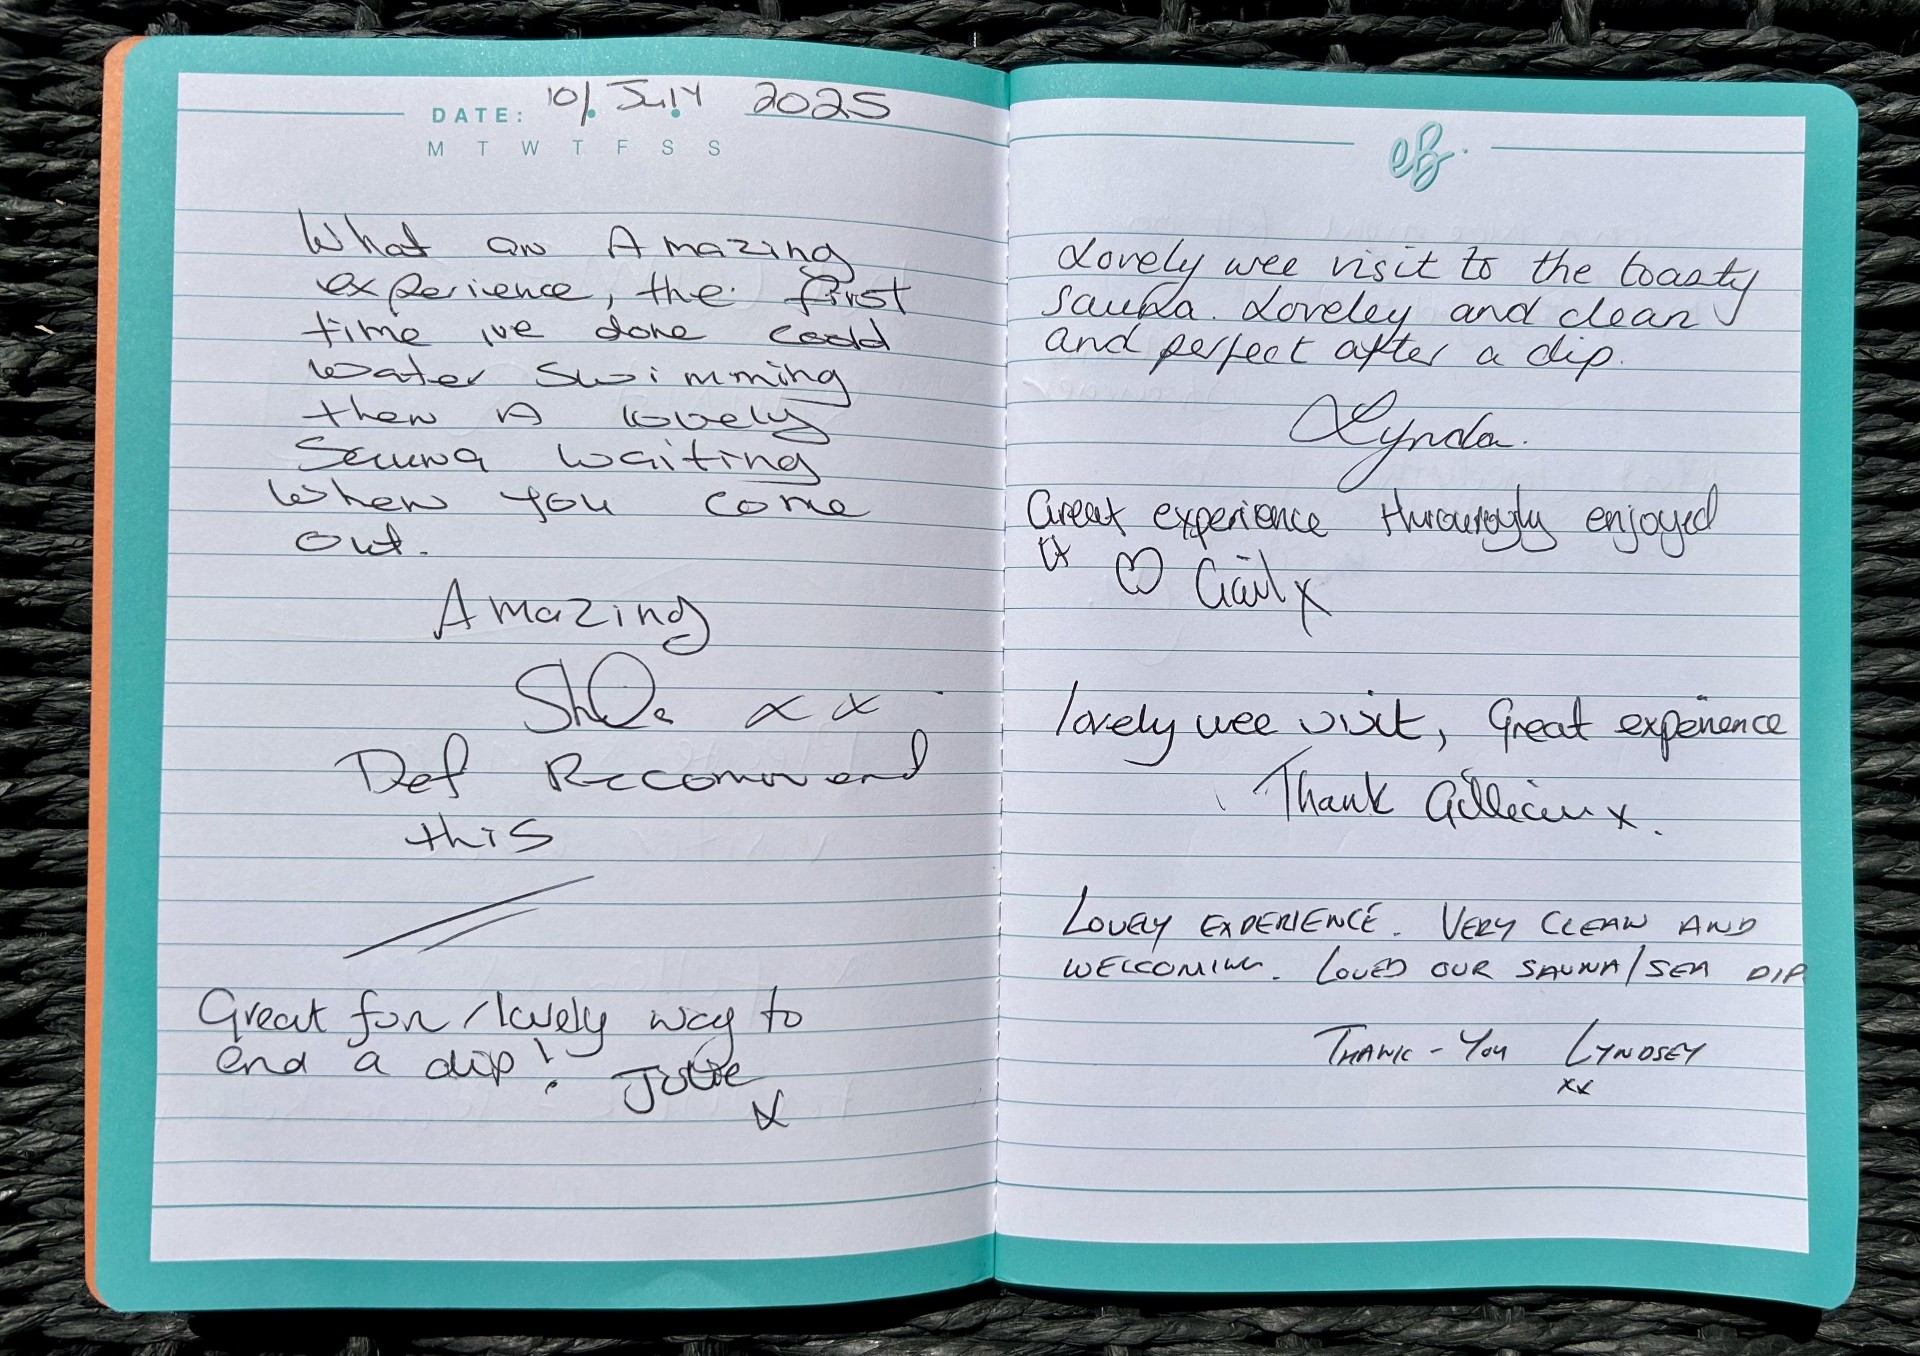 DATE: 10/ July 2025
M T W T F S S
What an Amazing
experience, the first
time ive done coold
water Swimming
then A lovely
Sauna waiting
when you come
out.
Amazing
xx
Def Recommend
this
Great fun/lovely way to
end a dip! Julie
x
eB.
Lovely wee visit to the toasty
sauna. Loveley and clean
and perfect after a dip.
Lynda.
Great experience thurouroughly enjoyed
it ♡ Gail x
lovely wee visit, Great experience
Thank Gillian x.
LOVELY EXPERIENCE. VERY CLEAN AND
WELCOMING. LOVED OUR SAUNA/SEA DIP
THANK-YOU LYNDSEY
xx